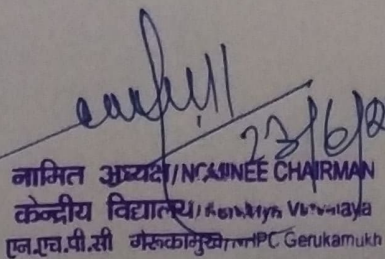 23/6/2
नामित अध्यक्ष/NOMINEE CHAIRMAN
केन्द्रीय विद्यालय/Kendriya Vidyalaya
एन.एच.पी.सी गेरूकामुख/NHPC Gerukamukh